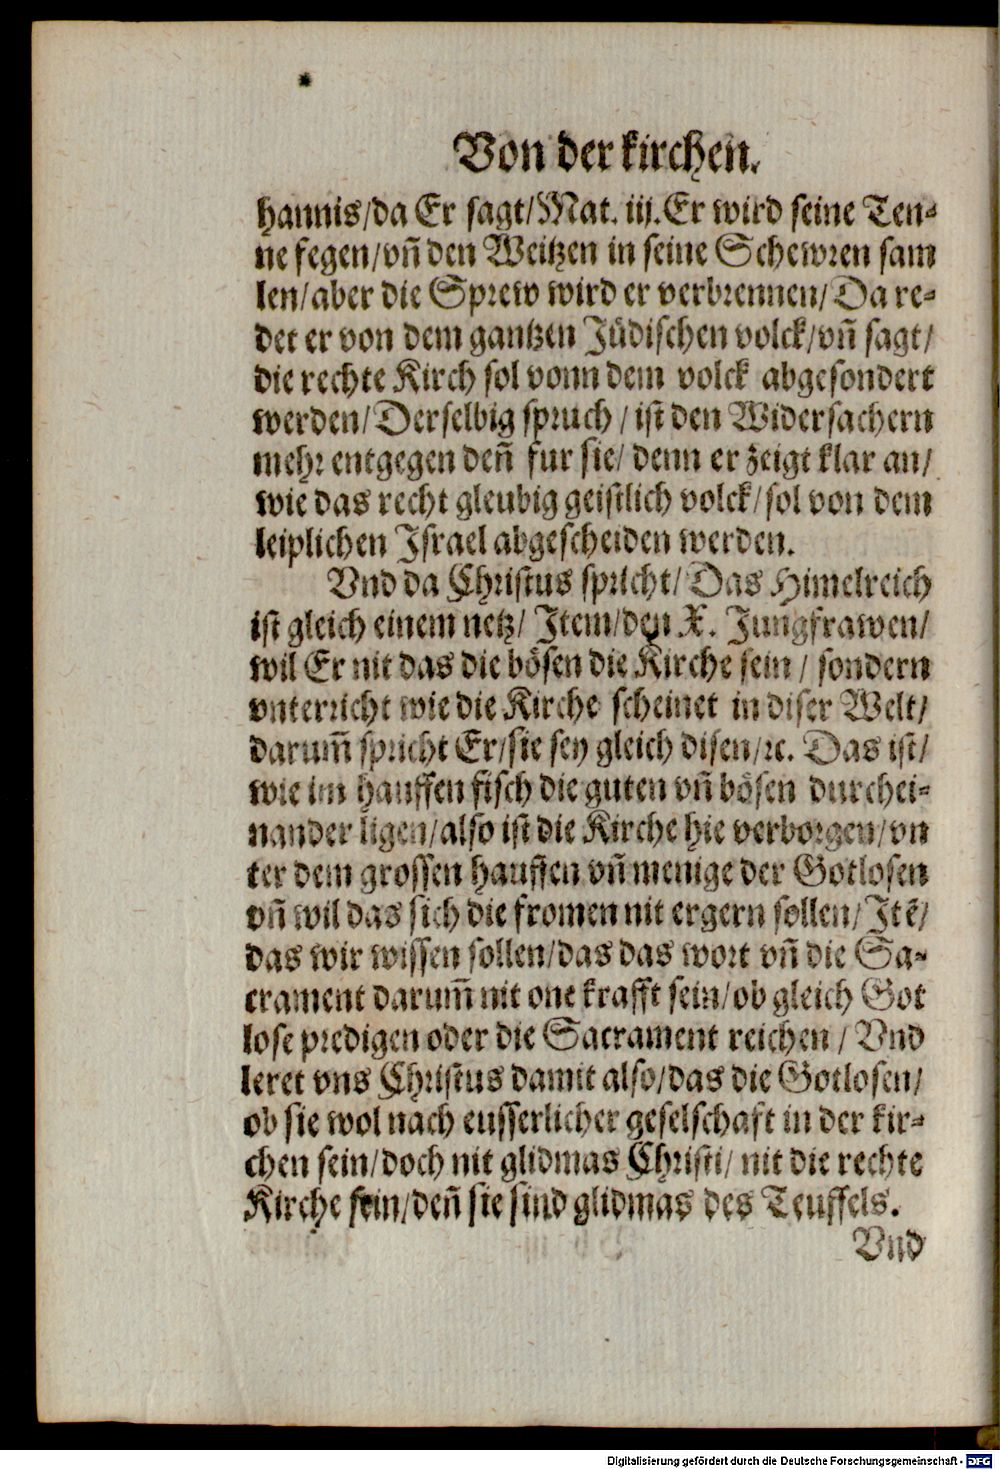 Von der kirchen.
hannis/da Er sagt/Mat. iij. Er wird seine Ten-
ne fegen/vñ den Weitzen in seine Schewren sam
len/aber die Sprew wird er verbrennen/Da re-
det er von dem gantzen Jüdischen volck/vñ sagt/
die rechte Kirch sol vonn dem volck abgesondert
werden/Derselbig spruch/ist den Widersachern
mehr entgegen deñ fur sie/denn er zeigt klar an/
wie das recht gleubig geistlich volck/sol von dem
leiplichen Israel abgescheiden werden.
Vnd da Christus spricht/Das Himelreich
ist gleich einem netz/Item/den X. Jungfrawen/
wil Er nit das die bösen die Kirche sein/sondern
vnterricht wie die Kirche scheinet in diser Welt/
darum̃ spricht Er/sie sey gleich disen/ꝛc. Das ist/
wie im hauffen fisch die guten vñ bösen durchei-
nander ligen/also ist die Kirche hie verborgen/vn
ter dem grossen hauffen vñ menige der Gotlosen
vñ wil das sich die fromen nit ergern sollen/Itẽ/
das wir wissen sollen/das das wort vñ die Sa-
crament darum̃ nit one krafft sein/ob gleich Got
lose predigen oder die Sacrament reichen/Vnd
leret vns Christus damit also/das die Gotlosen/
ob sie wol nach eusserlicher geselschaft in der kir-
chen sein/doch nit glidmas Christi/nit die rechte
Kirche sein/deñ sie sind glidmas des Teuffels.
Vnd
Digitalisierung gefördert durch die Deutsche Forschungsgemeinschaft - DFG